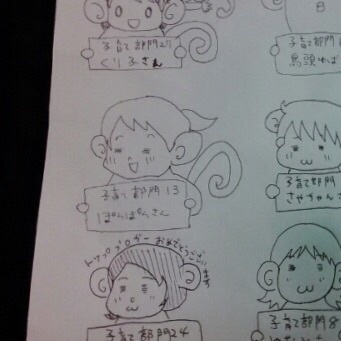 子育て部門27
くり子さん
8
子育て部門
馬頭ゆば
子育て部門13
ぽんぽんさん
子育て部門
さやちゃんさ
トップブロガー おめでとうございます
子育て部門24
子育て部門8